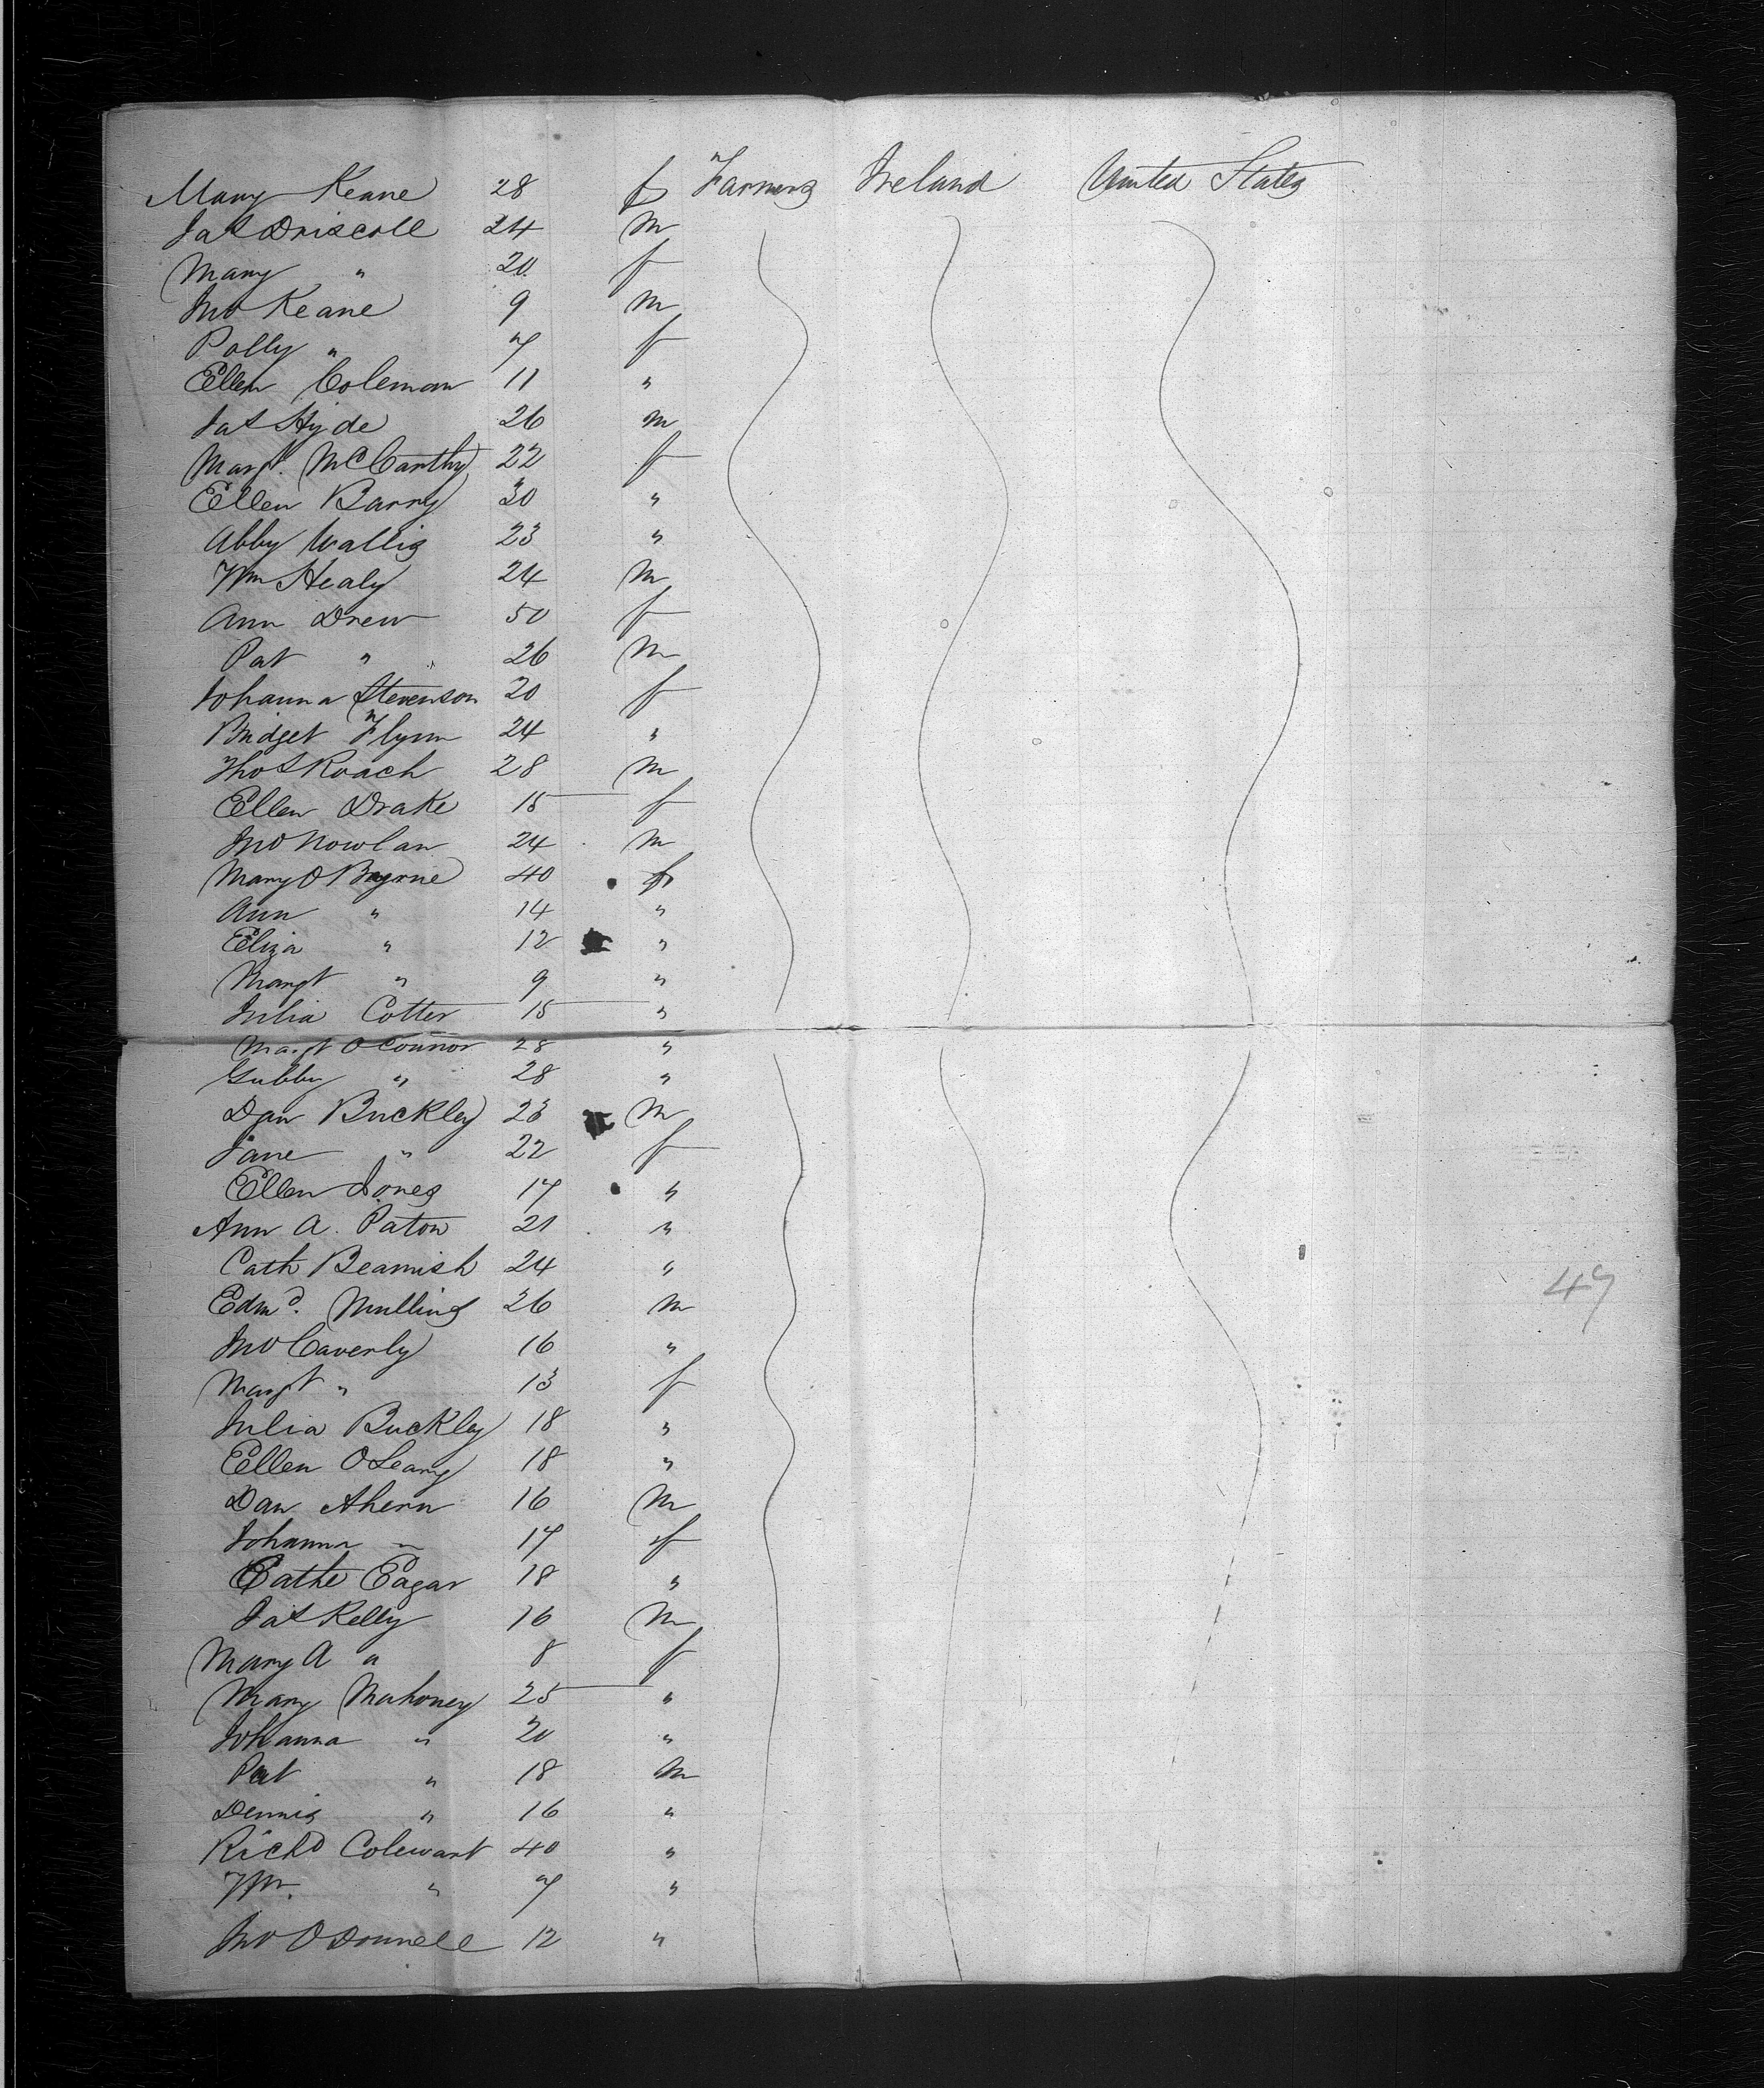 Mary Keane 28 f Farmers Ireland United States
Jas Driscoll 24 m
Mary " 20 f
Jno Keane 9 m
Polly " 7 f
Ellen Coleman 11 "
Jas Hyde 26 m
Margt. McCarthy 22 f
Ellen Barry 30 "
Abby Wallis 23 "
Wm Healy 24 m
Ann Drew 50 f
Pat " " 26 m
Johanna Stevenson 20 f
Bridget Flynn 24 "
Thos Roach 28 m
Ellen Drake 15 f
Jno Nowlan 24 m
Mary O Byrne 40 f
Ann " 14 "
Eliza " 12 "
Margt " 9 "
Julia Cotter 15 "
Margt O Connor 28 "
Gubby " 28 "
Dan Buckley 23 m
Jane " 22 f
Ellen Jones 17 "
Ann A. Paton 21 "
Cath Beamish 24 "
Edmd. Mullins 26 m
Jno Caverly 16 "
Margt " 13 f
Julia Buckley 18 "
Ellen O Leary 18 "
Dan Ahern 16 m
Johanna " 17 f
Cathe Eagar 18 "
Jas Kelly 16 m
Mary A " 8 f
Mary Mahoney 25 "
Johanna " 20 "
Pat " 18 m
Dennis " 16 "
Richd Colewart 40 "
Wm. " 7 "
Jno O Donnell 12 "
47